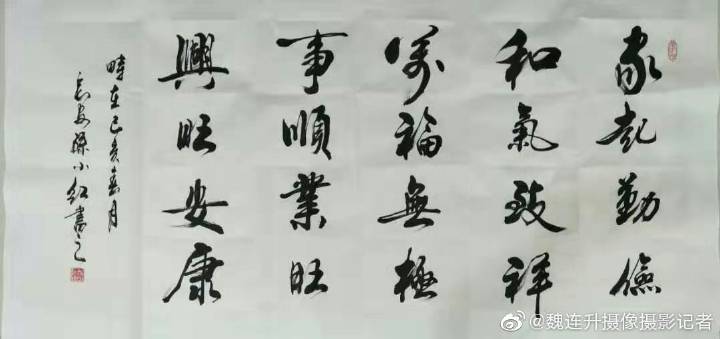 家起勤儉
和氣致祥
萬福無極
事順業旺
興旺安康
時在己亥春月
長安小紅書之
@魏连升摄像摄影记者